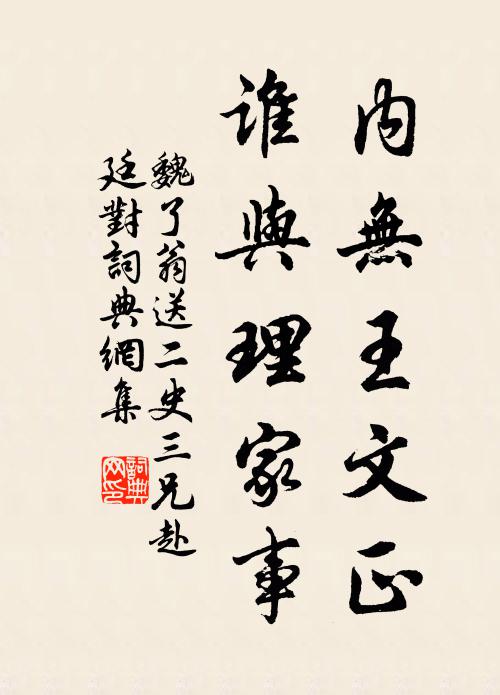 內無王文正
誰與理家事
魏了翁送二史三兄赴
廷對詞典網集
詞典網印